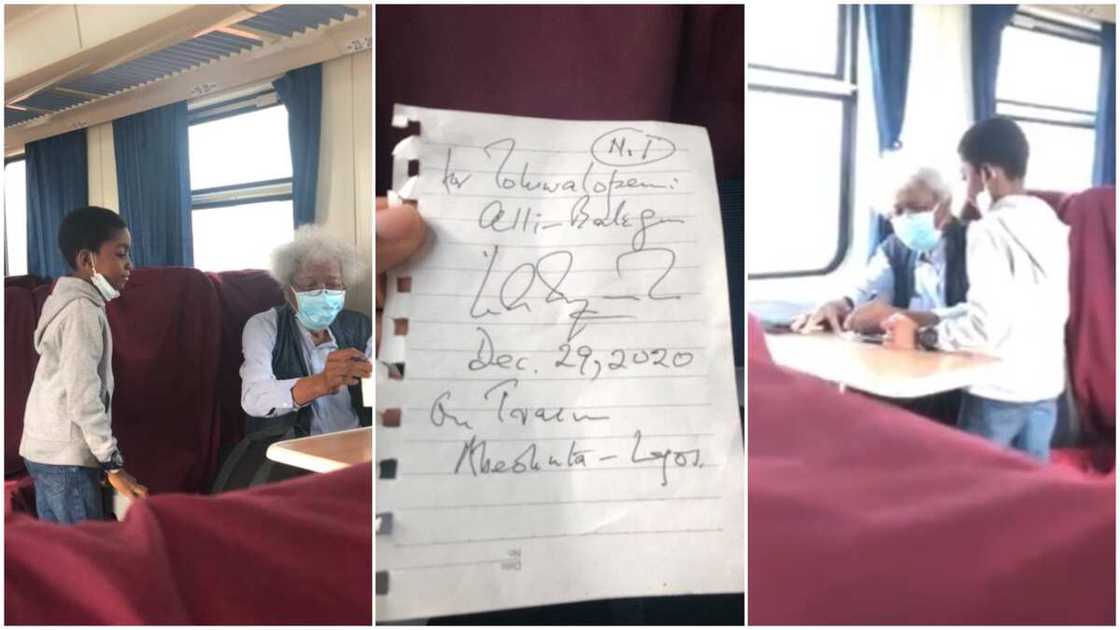 N.T
for Toluwalopemi:
Alli-Balogun
Dec. 29, 2020
On Train
Abeokuta – Lagos.
No
Date